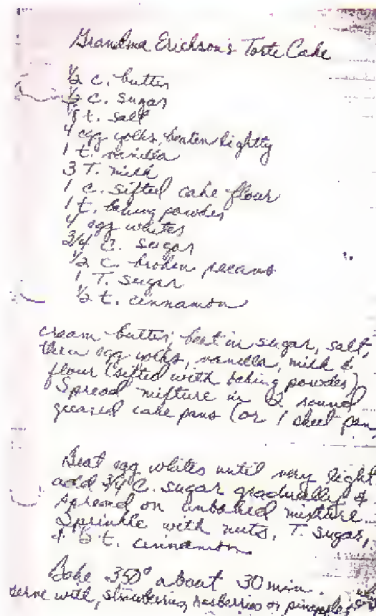 Grandma Erickson's Torte Cake
½ c. butter
½ c. sugar
⅛ t. salt
4 egg yolks, beaten lightly
1 t. vanilla
3 T. milk
1 c. sifted cake flour
1 t. baking powder
4 egg whites
3/4 c. sugar
½ c. broken pecans
1 T. sugar
½ t. cinnamon
cream butter, beat in sugar, salt,
then egg yolks, vanilla, milk &
flour (sifted with baking powder)
Spread mixture in 2 round
greased cake pans (or 1 sheet pan
Beat egg whites until very light
add 3/4 c. sugar gradually &
spread on unbaked mixture.
Sprinkle with nuts, T. sugar,
& ½ t. cinnamon
Bake 350° about 30 min.
serve with strawberries, rasberries or pineapple